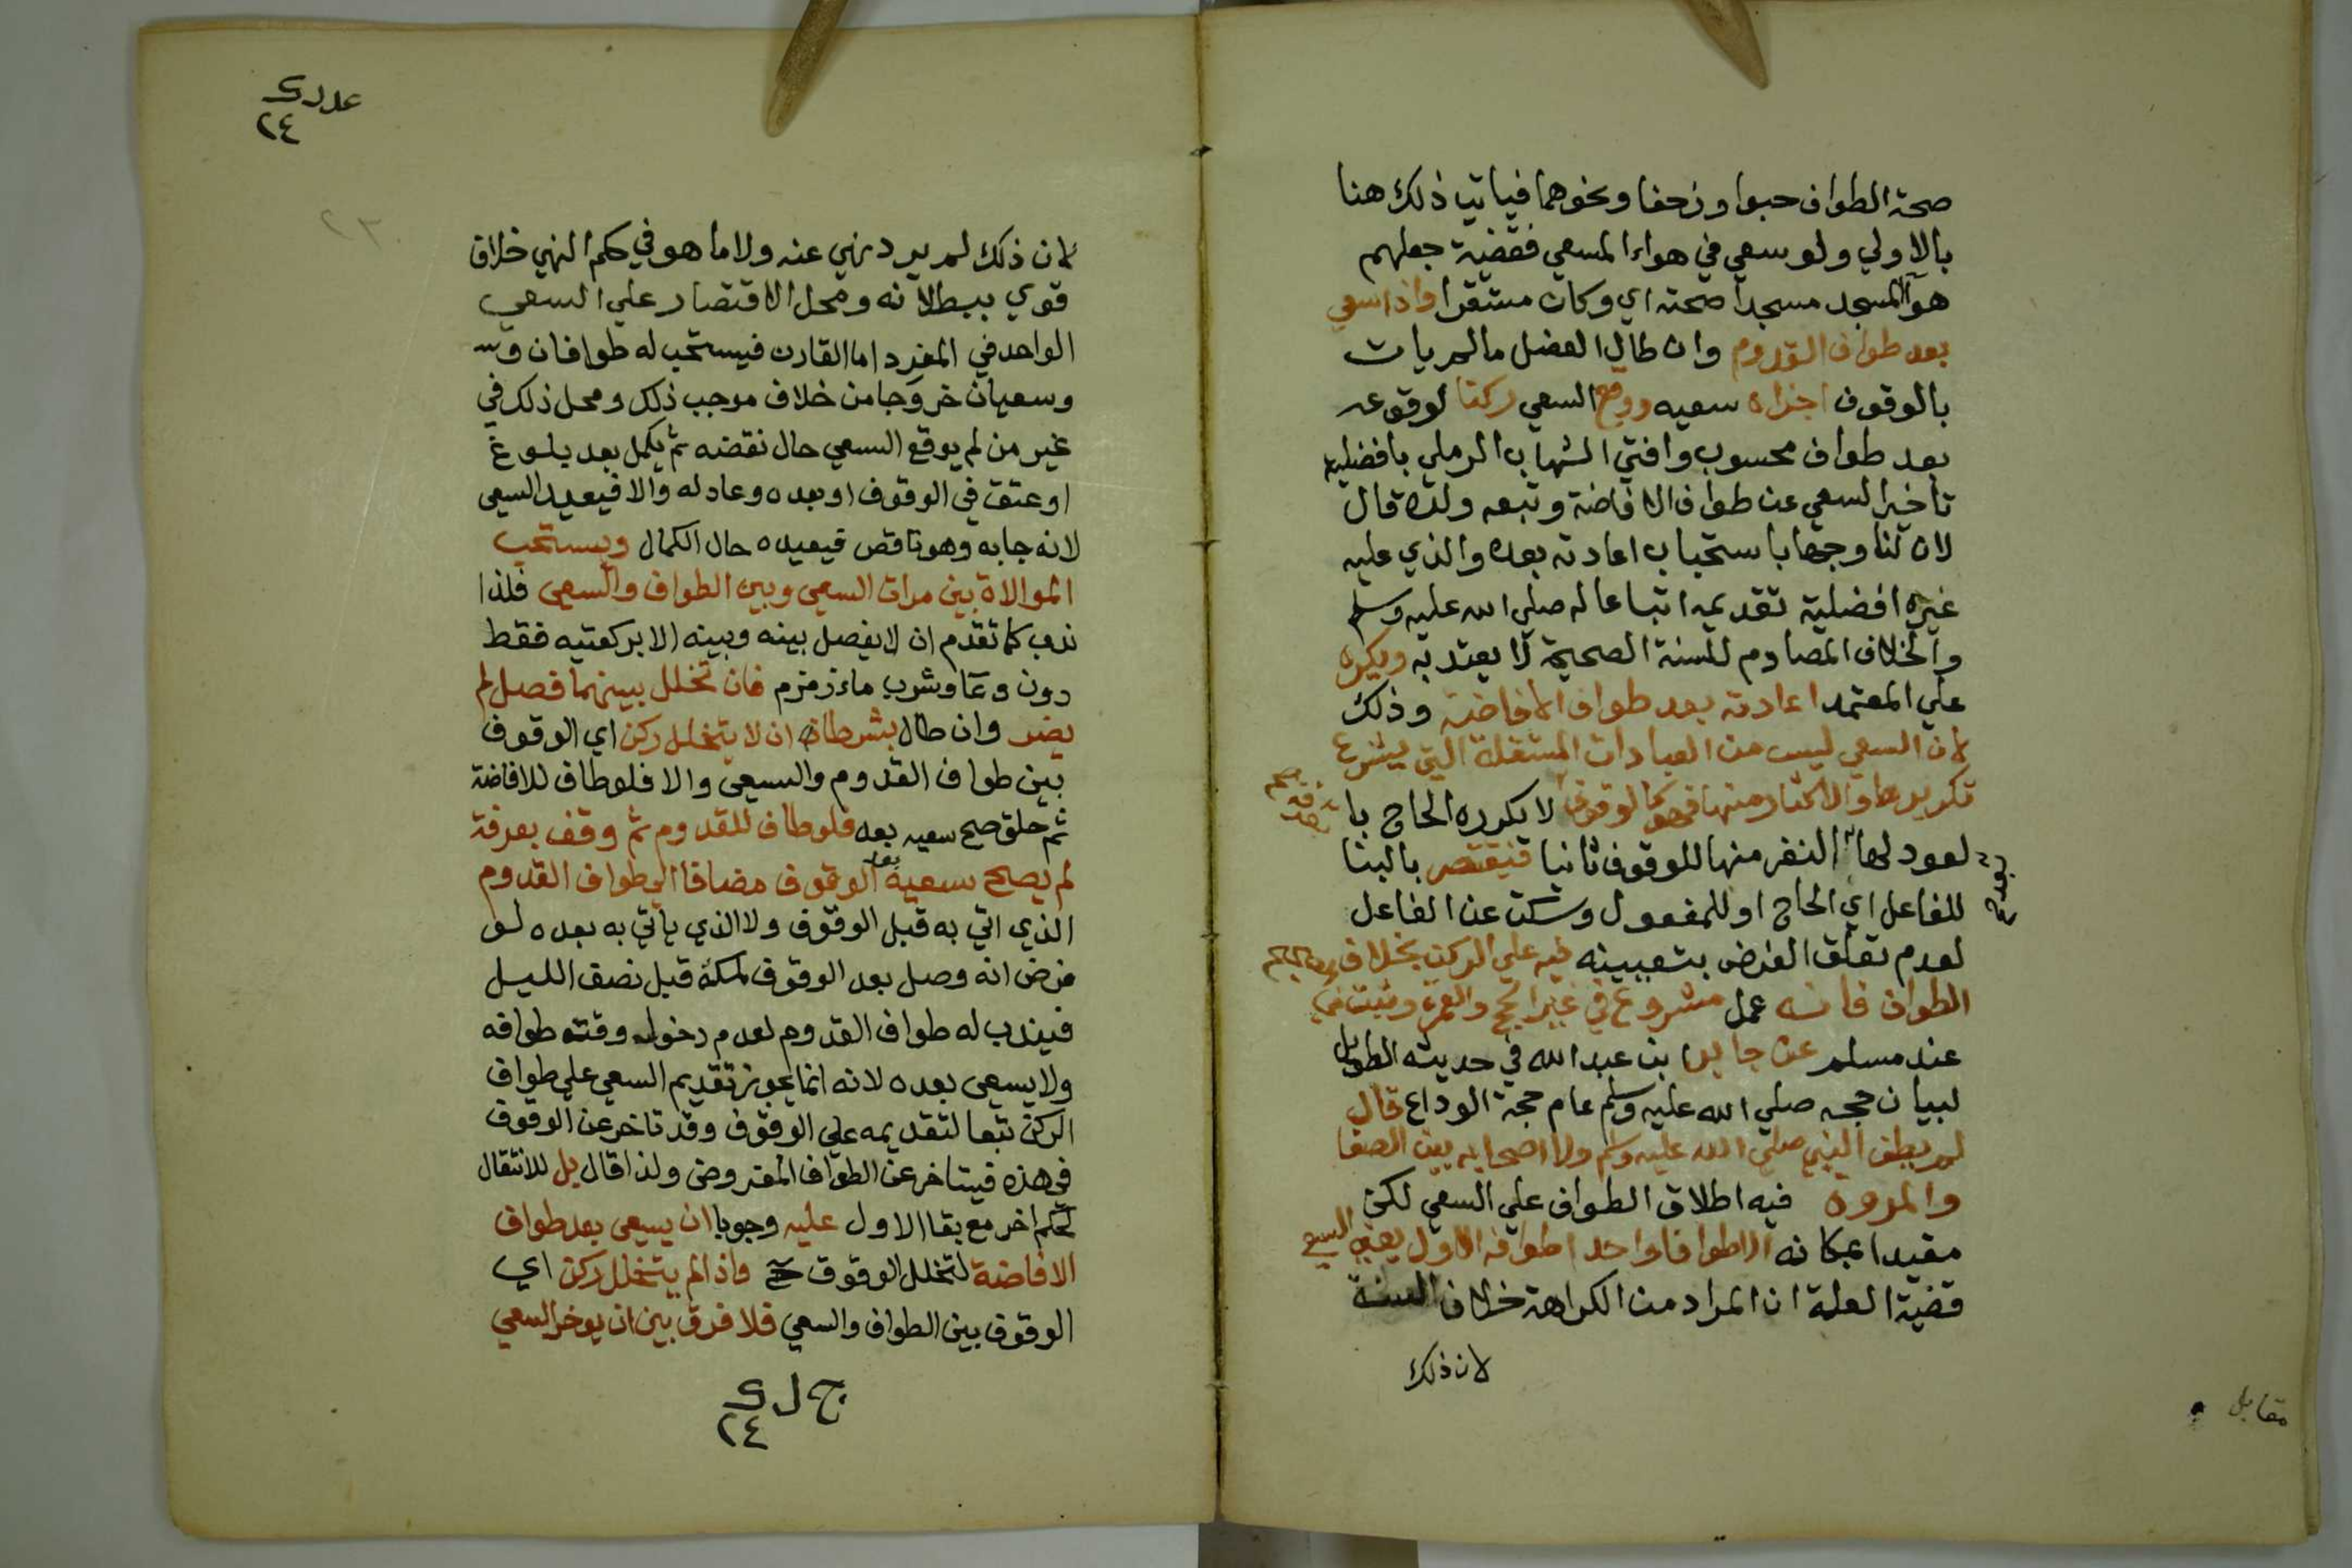 صحة الطواف حبوا وزحفا ونحوهما فياتي ذلك هنا
بالاولي ولو سعي في هواء المسعي فقضية جعلهم
هوآ المسجد مسجدا صحته اي وكان مستقرا واذا سعي
بعد طواف القدوم وان طال الفصل ما لم يات
بالوقوف اجزاه سعيه ووقع السعي ركنا لوقوعه
بعد طواف محسوب وافتي الشهاب الرملي بافضلية
تاخير السعي عن طواف الافاضة وتبعه ولده قال
لان لنا وجها باستحباب اعادته بعده والذي عليه
غيره افضلية تقديمه اتباعا له صلي الله عليه وسلم
والخلاف المصادم للسنة الصحيحة لا يعتد به ويكره
علي المعتمد اعادته بعد طواف الافاضة وذلك
لان السعي ليس من العبادات المستقلة التي يشرع
تكريرها والاكثار منها فهو كالوقوف لا يكرره الحاج با
لعود لها النفر منها للوقوف ثانيا فيقتصر بالبنا
بعد صح
للفاعل اي الحاج او للمفعول وسكت عن الفاعل
لعدم تعلق الغرض بتعيينه فيه علي الركن بخلاف
الطواف فانه عمل مشروع في غير الحج والعمرة وثبت في
عند مسلم عن جابر ابن عبد الله في حديثه الطويل
لبيان حجه صلي الله عليه وسلم عام حجة الوداع قال
لم يطف النبي صلي الله عليه وسلم ولا اصحابه بين الصفا
والمروه فيه اطلاق الطواف علي السعي لكن
مقيدا بمكانه الا طوافا واحدا طوافه الاول يعني السعي
قضية العلة ان المراد من الكراهة خلاف السنة
لان ذلك
مقابل
عدد ك
٢٤
٢٣
لان ذلك لم يرد نهي عنه ولا ما هو في حكم النهي خلاف
قوي ببطلانه ومحل الاقتصار علي السعي
الواحد في المفرد اما القارن فيستحب له طوافان وس
وسعيان خروجا من خلاف موجب ذلك ومحل ذلك في
غير من لم يوقع السعي حال نقصه ثم يكمل بعد بلوغ
او عتق في الوقوف او بعده وعاد له والا فيعيد السعي
لانه جا به وهو ناقص فيعيده حال الكمال ويستحب
الموالاة بين مرات السعي وبين الطواف والسعي فلذا
ندب كما تقدم ان لا يفصل بينه وبينه الا بركعتيه فقط
دون دعا وشرب ماء زمزم فان تخلل بينهما فصل لم
يضر وان طال بشرط ان لا يتخلل ركن اي الوقوف
بين طواف القدوم والسعي والا فلو طاف للافاضة
ثم حلق صح سعيه بعد فلو طاف للقدوم ثم وقف بعرفة
لم يصح سعيه بعد الوقوف مضافا الي طواف القدوم
الذي اتي به قبل الوقوف ولا الذي ياتي به بعده لو
فرض انه وصل بعد الوقوف لمكة قبل نصف الليل
فيندب له طواف القدوم لعدم دخول وقت طوافه
ولا يسعي بعده لانه انما يجوز تقديم السعي علي طواف
الركن تبعا لتقديمه علي الوقوف وقد تاخر عن الوقوف
في هذه فيتاخر عن الطواف المفروض ولذا قال بل للانتقال
لحكم اخر مع بقا الاول عليه وجوبا ان يسعي بعد طواف
الافاضة لتخلل الوقوف ح واذا لم يتخلل ركن اي
الوقوف بين الطواف والسعي فلا فرق بين ان يوخر السعي
ج ل ك
٢٤